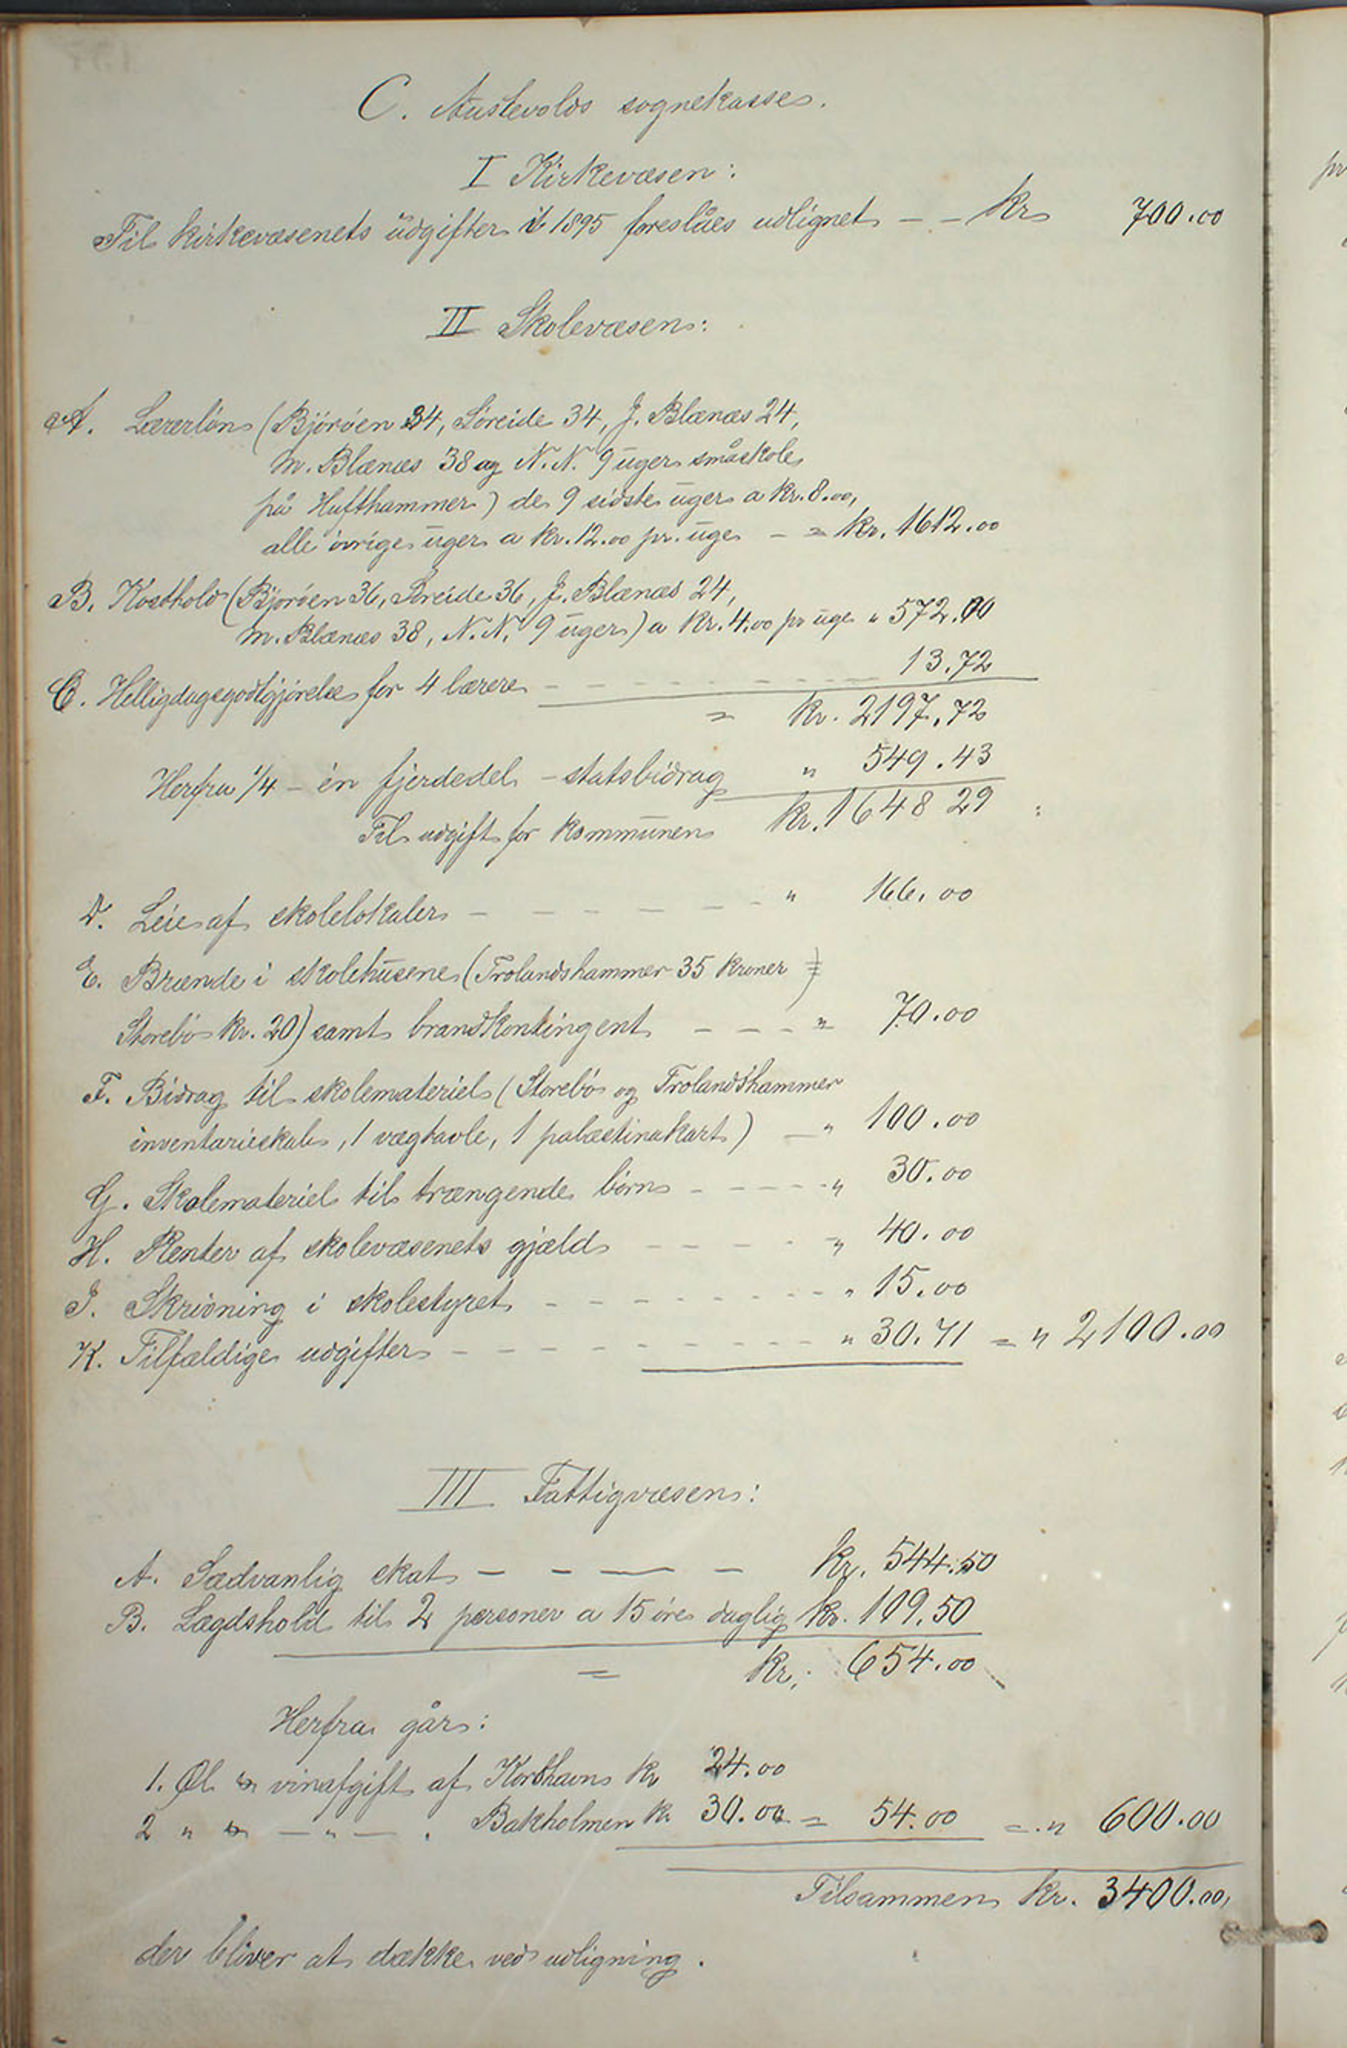 C. Austevolds sognekasse.
I Kirkevæsen:
Til kirkevæsenets udgifter i 1895 foreslåes udlignet - - kr 700.00
II Skolevæsen:
A. Lærerløn (Björöen 34, Söreide 34, J. Blænæs 24,
M. Blænæs 38 og N.N. 9 uger småskole
på Hufthammer) de 9 sidste uger a kr. 8.00,
alle övrige uger a kr. 12.00 pr. uge - = kr. 1612.00
B. Kosthold (Björöen 36, Söreide 36, J. Blænæs 24,
M. Blænæs 38, N.N. 9 uger) a kr. 4.00 pr uge " 572.00
C. Helligdagsgodtgjörelse for 4 lærere - - - 13.72
= kr. 2197.72
Herfra 1/4 - én fjerdedel - statsbidrag " 549.43
Til udgift for kommunen kr. 1648 29
D. Leie af skolelokaler - - - " 166.00
E. Brænde i skolehusene (Trolandshammer 35 kroner
Storebö kr. 20) samt brandkontingent - - - " 70.00
F. Bidrag til skolemateriel (Storebö og Trolandshammer
inventarieskab, 1 vægtavle, 1 palæstinakart) - " 100.00
G. Skolemateriel til trængende börn - - - " 30.00
H. Renter af skolevæsenets gjæld - - - " 40.00
J. Skrivning i skolestyret - - - " 15.00
K. Tilfældige udgifter - - - " 30.71 = " 2100.00
III Fattigvæsen:
A. Sædvanlig skat - - - - kr. 544.50
B. Lægdshold til 2 personer a 15 öre daglig kr. 109.50
= kr. 654.00
Herfra går:
1. Øl vinafgift af Korshavn kr 24.00
2 " - " - " Bakholmen kr. 30.00 = 54.00 = " 600.00
Tilsammen kr. 3400.00,
der bliver at dække ved udligning.